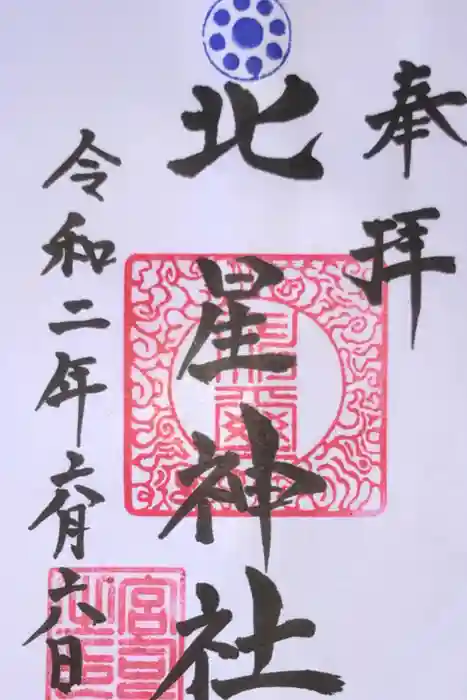 奉拝
北星神社
令和二年六月六日